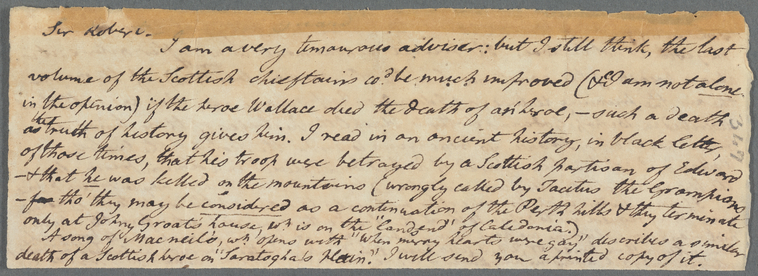 Sir Robert.
I am a very timourous adviser: but I still think, the last
volume of the Scottish chieftains cod. be much improved (& I am not alone
in the opinion) if the heroe Wallace died the death of an heroe, – such a death
as the truth of history gives him. I read in an ancient history, in black letter,
of those times, that his troop were betrayed by a Scottish partisan of Edward
– & that he was killed on the mountains (wrongly called by Tacitus the Grampions
– for tho' they may be considered as a continuation of the Perth hills & they terminate
only at Johny Groat's house, wh. is on the "Landsend" of Caledonia.)
A song of Macneil's, wh. opens with "When merry hearts were gay," describes a similar
death of a Scottish heroe on "Saratogha's Plain." I will send you a printed copy of it.
347